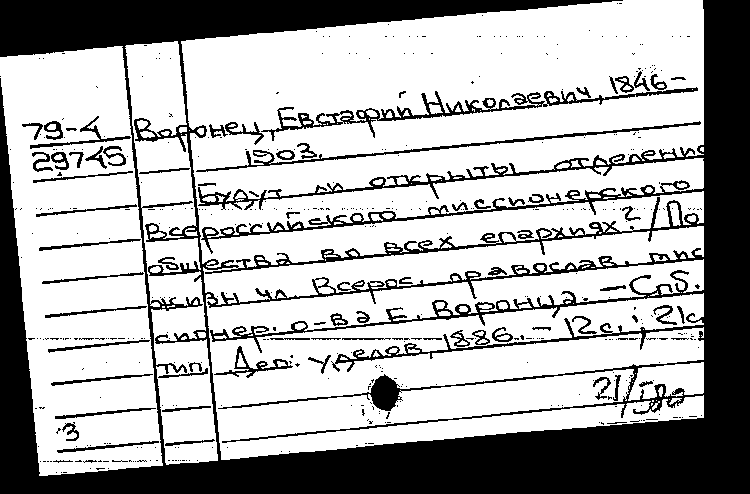 79-4 Воронец, Евстафий Николаевич, 1846-
29745 1903.
Будут ли открыты отделения
Всероссийского миссионерского
общества во всех епархиях? / По
жизн чл. Всерос. православ. мис
сионер. о-ва Е. Воронца. - Спб.
тип. Деп. уделов, 1886. - 12 с.; 21 с
21/I 80
3